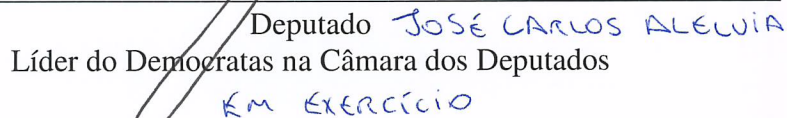 Deputado JOSÉ CARLOS ALELUIA
Líder do Democratas na Câmara dos Deputados
EM EXERCÍCIO